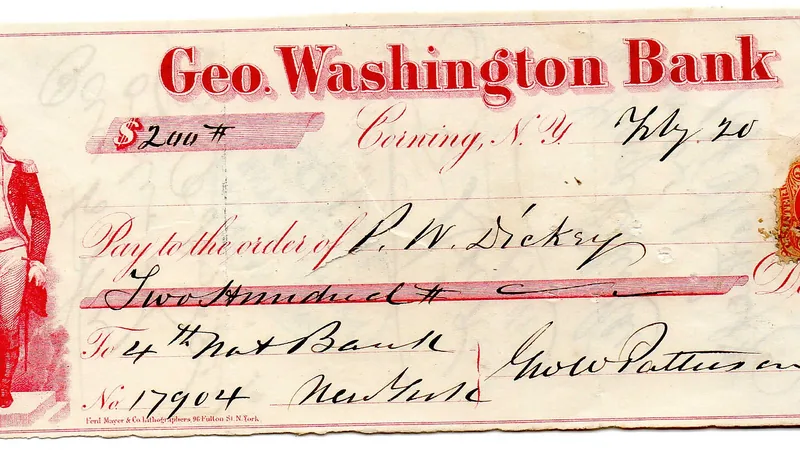 Geo. Washington Bank
$ 200 #
Corning, N.Y. Feby. 20
Pay to the order of P. W. Dickey
Two Hundred #
To 4th Nat Bank
No 17904 New York
Geo W Patterson
Ferd Mayer & Co Lithographers 96 Fulton St. N. York.